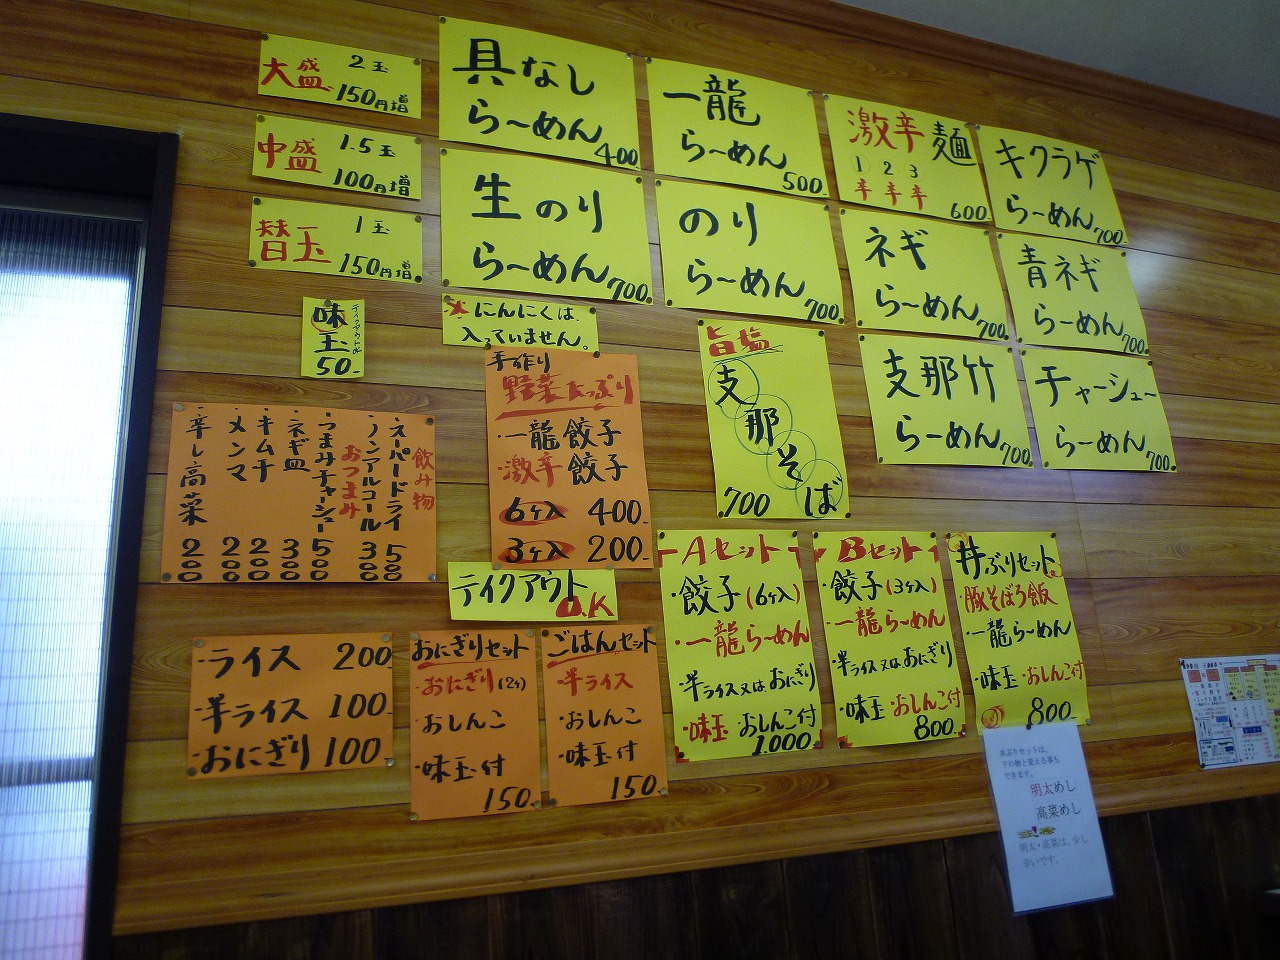 大盛 2玉
150円増
中盛 1.5玉
100円増
替玉 1玉
150円増
味玉
50-
テイクアウトOK
具なし
らーめん
400
一龍
らーめん
500
激辛麺
1 2 3
辛 辛 辛
600
キクラゲ
らーめん
700
生のり
らーめん
700
のり
らーめん
700
ネギ
らーめん
700
青ネギ
らーめん
700
支那竹
らーめん
700
チャーシュー
らーめん
700
旨塩
支那そば
700
にんにくは、
入っていません。
手作り
野菜たっぷり
・一龍餃子
・激辛餃子
6ヶ入 400-
3ヶ入 200-
テイクアウト
O.K
飲み物
・スーパードライ 500
・ノンアルコール 300
おつまみ
・つまみチャーシュー 500
・ネギ皿 300
・キムチ 200
・メンマ 200
・辛し高菜 200
・ライス 200
・半ライス 100
・おにぎり 100
おにぎりセット
・おにぎり(2ヶ)
・おしんこ
・味玉付
150
ごはんセット
・半ライス
・おしんこ
・味玉付
150
Aセット
・餃子(6ヶ入)
・一龍らーめん
・半ライス又はおにぎり
・味玉・おしんこ付
1.000
Bセット
・餃子(3ヶ入)
・一龍らーめん
・半ライス又はおにぎり
・味玉・おしんこ付
800-
丼ぶりセット
・豚そぼろ飯
・一龍らーめん
・味玉・おしんこ付
800-
丼ぶりセットは、
下の物と変える事も
できます。
明太めし
高菜めし
明太・高菜は、少し
辛いです。